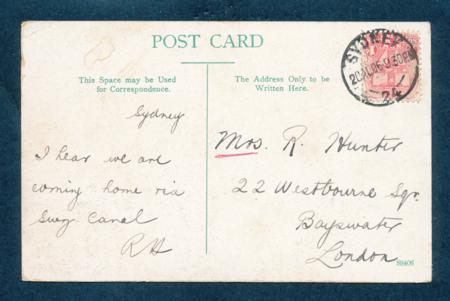 POST CARD
This Space may be Used
for Correspondence.
Sydney
I hear we are
coming home via
Suez Canal
RH
The Address Only to be
Written Here.
Mrs. R. Hunter
22 Westbourne Sqr.
Bayswater
London
SYDNEY
24